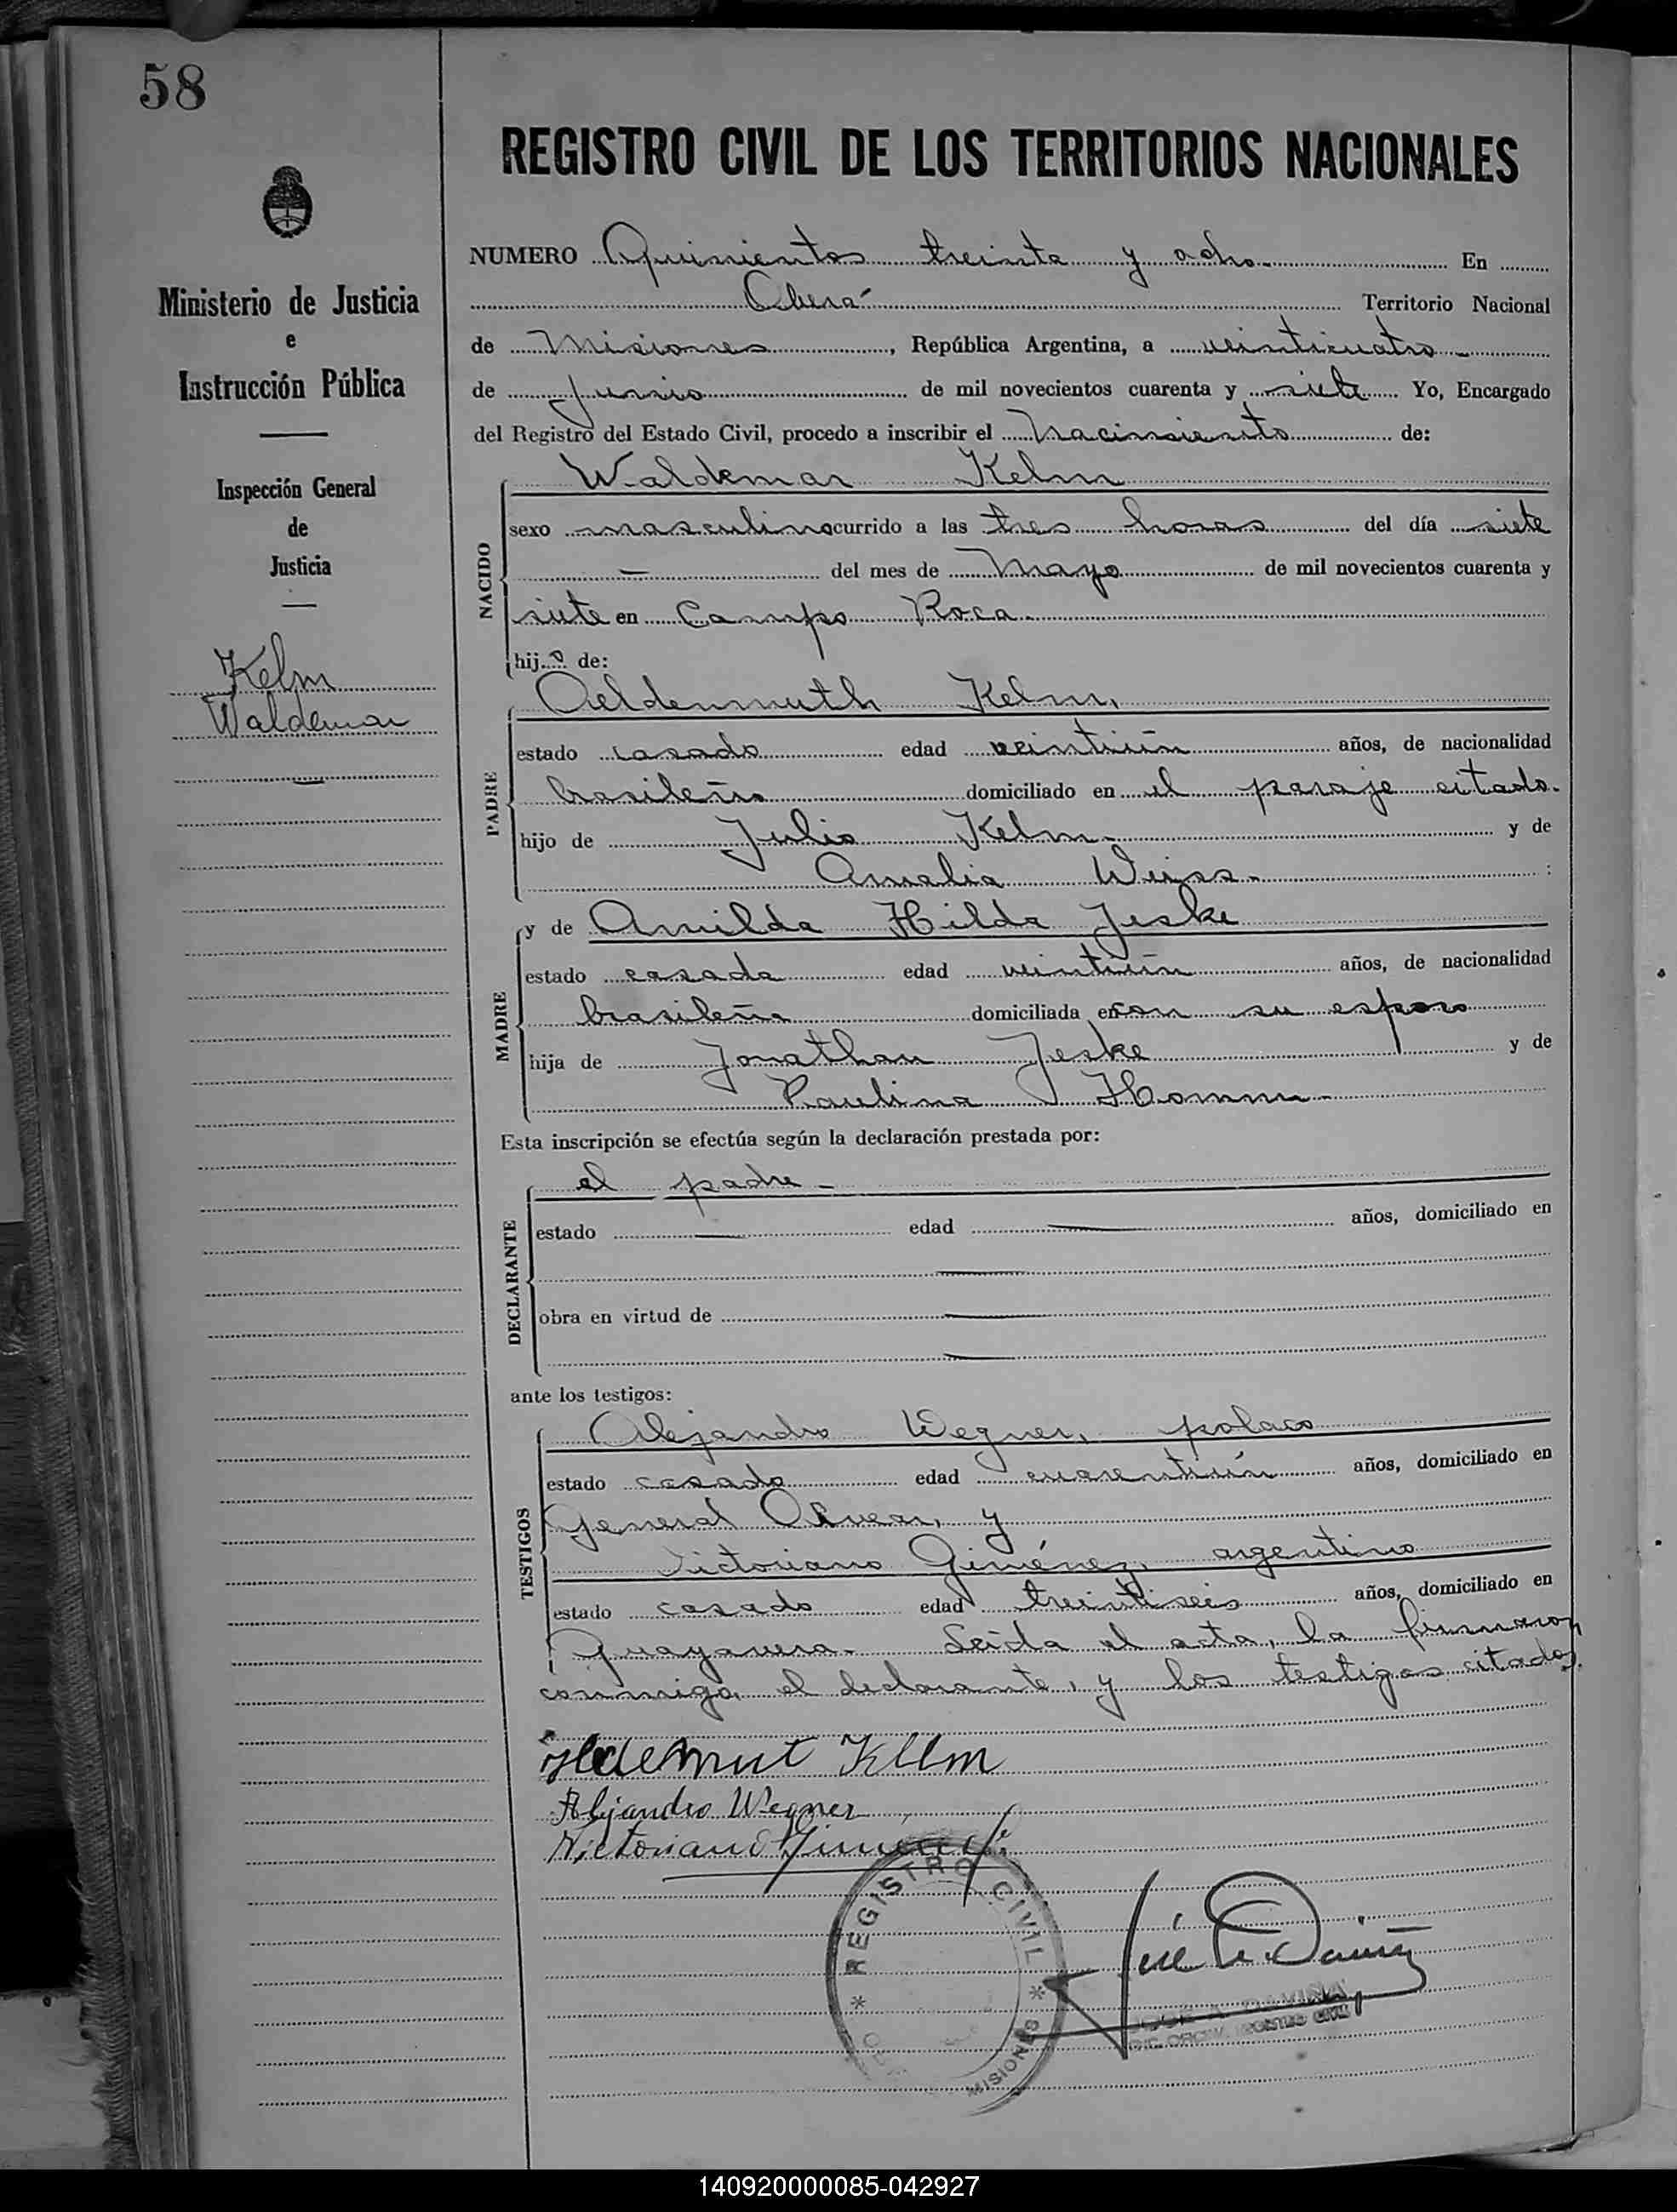 58
REGISTRO CIVIL DE LOS TERRITORIOS NACIONALES
NUMERO Quinientos treinta y ocho.- En
Oberá Territorio Nacional
de Misiones, República Argentina, a veinticuatro
de Junio de mil novecientos cuarenta y siete Yo, Encargado
del Registro del Estado Civil, procedo a inscribir el Nacimiento de:
Ministerio de Justicia
e
Instrucción Pública
Inspección General
de
Justicia
Kelm
Waldemar
NACIDO
Waldemar Kelm
sexo masculino ocurrido a las tres horas del día siete
— del mes de Mayo de mil novecientos cuarenta y
siete en Campo Roca.
hijo de:
PADRE
Oeldemuth Kelm,
estado casado edad veintiún años, de nacionalidad
brasileño domiciliado en el paraje citado.
hijo de Julio Kelm y de
Amalia Weiss.
MADRE
y de Amilda Hilda Jeske
estado casada edad veintiún años, de nacionalidad
brasileña domiciliada en con su esposo
hija de Jonathan Jeske y de
Paulina
Esta inscripción se efectúa según la declaración prestada por:
DECLARANTE
el padre -
estado — edad — años, domiciliado en
—
obra en virtud de —
—
ante los testigos:
TESTIGOS
Alejandro Wegner, polaco
estado casado edad cuarentiún años, domiciliado en
General Alvear, y
Victoriano Giménez, argentino
estado casado edad treintiseis años, domiciliado en
Guayavera. Leida el acta, la firmaron
conmigo, el declarante, y los testigos citados.
Kelm
Alejandro Wegner
Victoriano Gimenez
REGISTRO CIVIL
MISIONES
JOSÉ A. DAVIÑA
REGISTRO CIVIL
140920000085-042927